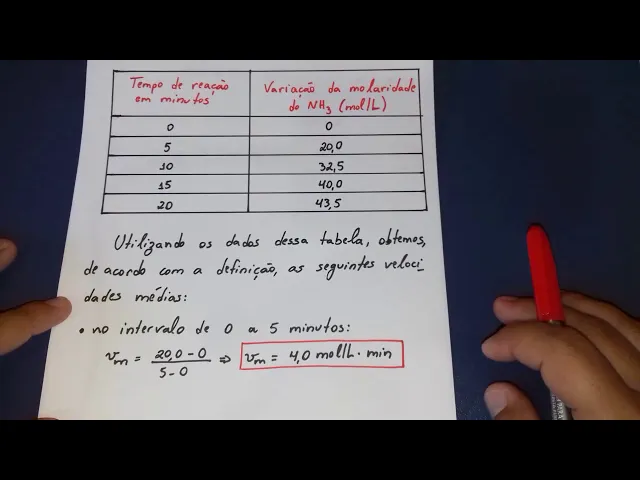 Tempo de reação em minutos
Variação da molaridade do NH3 (mol/L)
0 0
5 20,0
10 32,5
15 40,0
20 43,5
Utilizando os dados dessa tabela, obtemos,
de acordo com a definição, as seguintes veloci_
dades médias:
• no intervalo de 0 a 5 minutos:
vm = 20,0 - 0 / 5 - 0 ⇒ vm = 4,0 mol/L · min